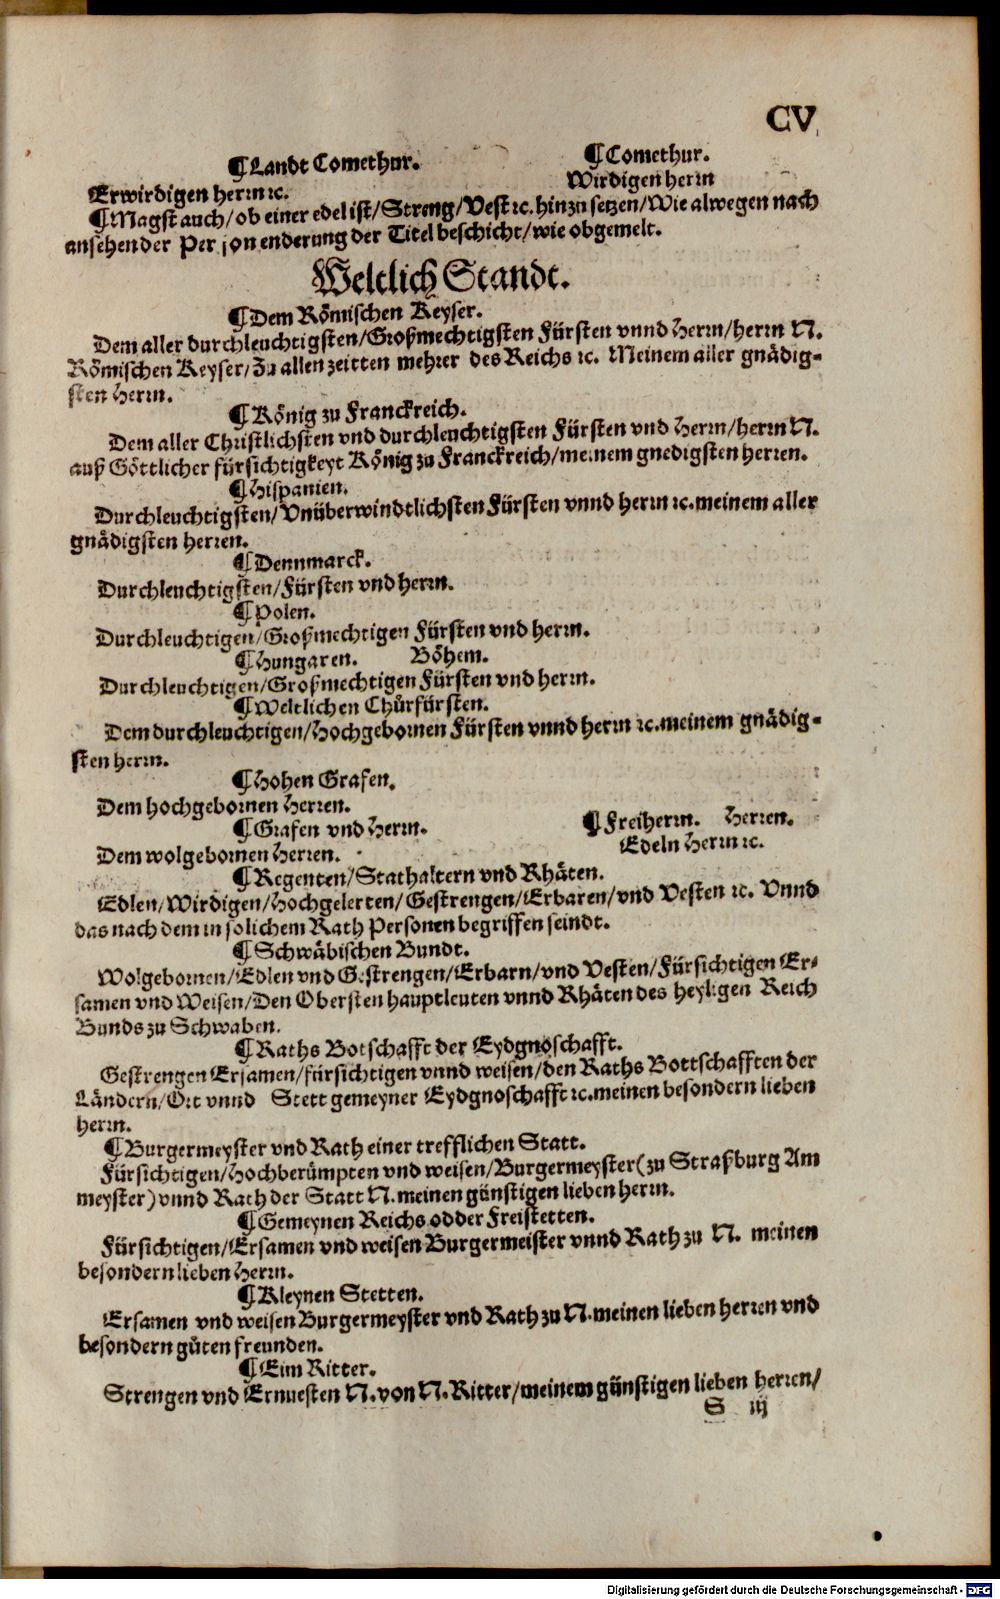 CV
¶Landt Comethur. ¶Comethur.
Erwirdigen herrn ꝛc. Wirdigen herrn
¶Magst auch/ ob einer edel ist/ Streng/ Vest ꝛc. hinzu setzen/ Wie alwegen nach
ansehen der Person enderung der Titel beschicht/ wie obgemelt.
Weltlich Standt.
¶Dem Römischen Keyser.
Dem aller durchleuchtigsten/ Großmechtigsten Fürsten vnnd Herrn/ herrn N.
Römischen Keyser/ Zu allen zeitten mehrer des Reichs ꝛc. Meinem aller gnädig-
sten Herrn.
¶König zu Franckreich.
Dem aller Christlichsten vnd durchleuchtigsten Fürsten vnd Herrn/ herrn N.
auß Göttlicher fürsichtigkeyt König zu Franckreich/ meinem gnedigsten herren.
¶Hispanien.
Durchleuchtigsten/ Vnüberwindtlichsten Fürsten vnnd herrn ꝛc. meinem aller
gnädigsten herren.
¶Dennmarck.
Durchleuchtigsten/ Fürsten vnd herrn.
¶Polen.
Durchleuchtigen/ Großmechtigen Fürsten vnd herrn.
¶Hungaren. Böhem.
Durchleuchtigen/ Großmechtigen Fürsten vnd herrn.
¶Weltlichen Chůrfürsten.
Dem durchleuchtigen/ Hochgebornen Fürsten vnnd herrn ꝛc. meinem gnädig-
sten herrn.
¶Hohen Grafen.
Dem hochgebornen Herren.
¶Grafen vnd Herrn. ¶Freiherrn. Herren.
Dem wolgebornen Herren. Edeln Herrn ꝛc.
¶Regenten/ Stathaltern vnd Rhäten.
Edlen/ Wirdigen/ Hochgelerten/ Gestrengen/ Erbaren/ vnd Vesten ꝛc. Vnnd
das nach dem in solichem Rath Personen begriffen seindt.
¶Schwäbischen Bundt.
Wolgebornen/ Edlen vnd Gestrengen/ Erbarn/ vnd Vesten/ Fürsichtigen Er-
samen vnd Weisen/ Den Obersten hauptleuten vnnd Rhäten des heyligen Reich
Bunds zu Schwaben.
¶Raths Botschafft der Eydgnoschafft.
Gestrengen Ersamen/ fürsichtigen vnnd weisen/ den Raths Bottschafften der
Ländern/ Ort vnnd Stett gemeyner Eydgnoschafft ꝛc. meinen besondern lieben
herrn.
¶Burgermeyster vnd Rath einer trefflichen Statt.
Fürsichtigen/ Hochberümpten vnd weisen/ Burgermeyster (zu Straßburg Am
meyster) vnnd Rath der Statt N. meinen günstigen lieben herrn.
¶Gemeynen Reichs odder Freistetten.
Fürsichtigen/ Ersamen vnd weisen Burgermeister vnnd Rath zu N. meinen
besondern lieben Herrn.
¶Kleynen Stetten.
Ersamen vnd weisen Burgermeyster vnd Rath zu N. meinen lieben herren vnd
besondern gůten freunden.
¶Eim Ritter.
Strengen vnd Ernuesten N. von N. Ritter/ meinem günstigen lieben herren/
S iij
Digitalisierung gefördert durch die Deutsche Forschungsgemeinschaft - DFG